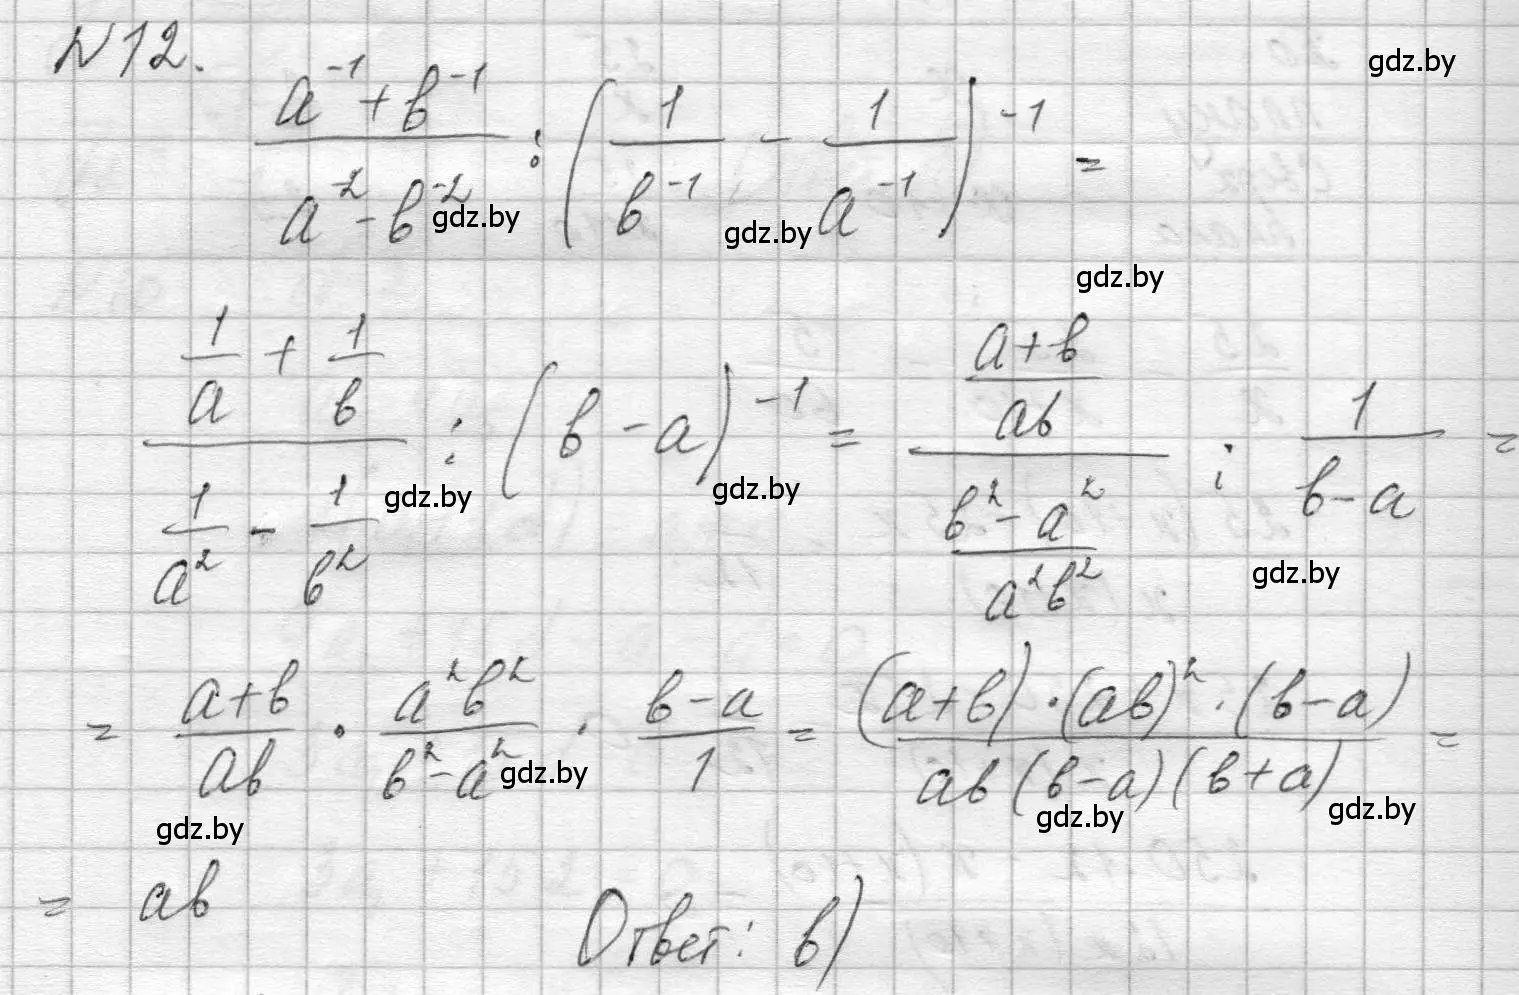 №12.
(a⁻¹ + b⁻¹)/(a⁻² - b⁻²) : (1/b⁻¹ - 1/a⁻¹)⁻¹ =
(1/a + 1/b)/(1/a² - 1/b²) : (b - a)⁻¹ = ((a+b)/(ab))/((b² - a²)/(a²b²)) : 1/(b-a) =
= (a+b)/(ab) · (a²b²)/(b²-a²) · (b-a)/1 = ((a+b)·(ab)²·(b-a))/(ab(b-a)(b+a)) =
= ab
Ответ: в)
gdz.by
gdz.by
gdz.by
gdz.by
gdz.by
gdz.by
gdz.by
gdz.by
gdz.by
gdz.by
gdz.by